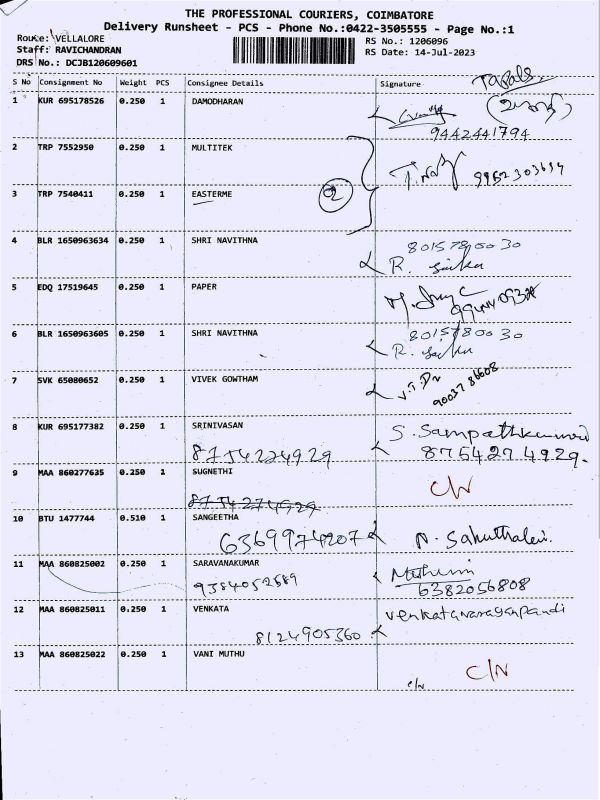 THE PROFESSIONAL COURIERS, COIMBATORE
Delivery Runsheet - PCS - Phone No.:0422-3505555 - Page No.:1
Route: VELLALORE
RS No.: 1206096
Staff: RAVICHANDRAN
RS Date: 14-Jul-2023
DRS No.: DCJB120609601
S No Consignment No Weight PCS Consignee Details Signature
Tapals
1 KUR 695178526 0.250 1 DAMODHARAN
9442441794
2 TRP 7552950 0.250 1 MULTITEK
3 TRP 7540411 0.250 1 EASTERME
2
4 BLR 1650963634 0.250 1 SHRI NAVITHNA
8015780030
R.
5 EDQ 17519645 0.250 1 PAPER
6 BLR 1650963605 0.250 1 SHRI NAVITHNA
8015780030
R.
7 SVK 65080652 0.250 1 VIVEK GOWTHAM
9003786608
8 KUR 695177382 0.250 1 SRINIVASAN
S. Sampathkumar
8754274929
8754274929-
9 MAA 860277635 0.250 1 SUGNETHI
C/N
8754274929
10 BTU 1477744 0.510 1 SANGEETHA
6369974207
N. Sakuthalevi
11 MAA 860825002 0.250 1 SARAVANAKUMAR
9384052889
6382056808
12 MAA 860825011 0.250 1 VENKATA
Venkatanarayanpandi
8124905360
13 MAA 860825022 0.250 1 VANI MUTHU
C/N
c/N